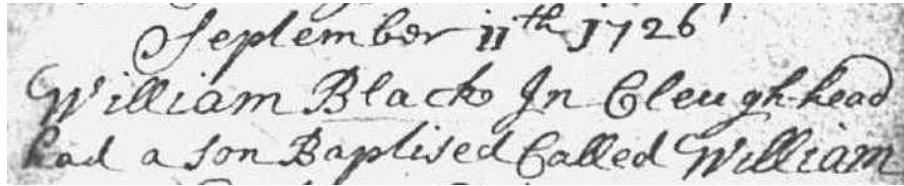 September 11th 1726
William Black In Cleugh-head
had a son Baptised Called William